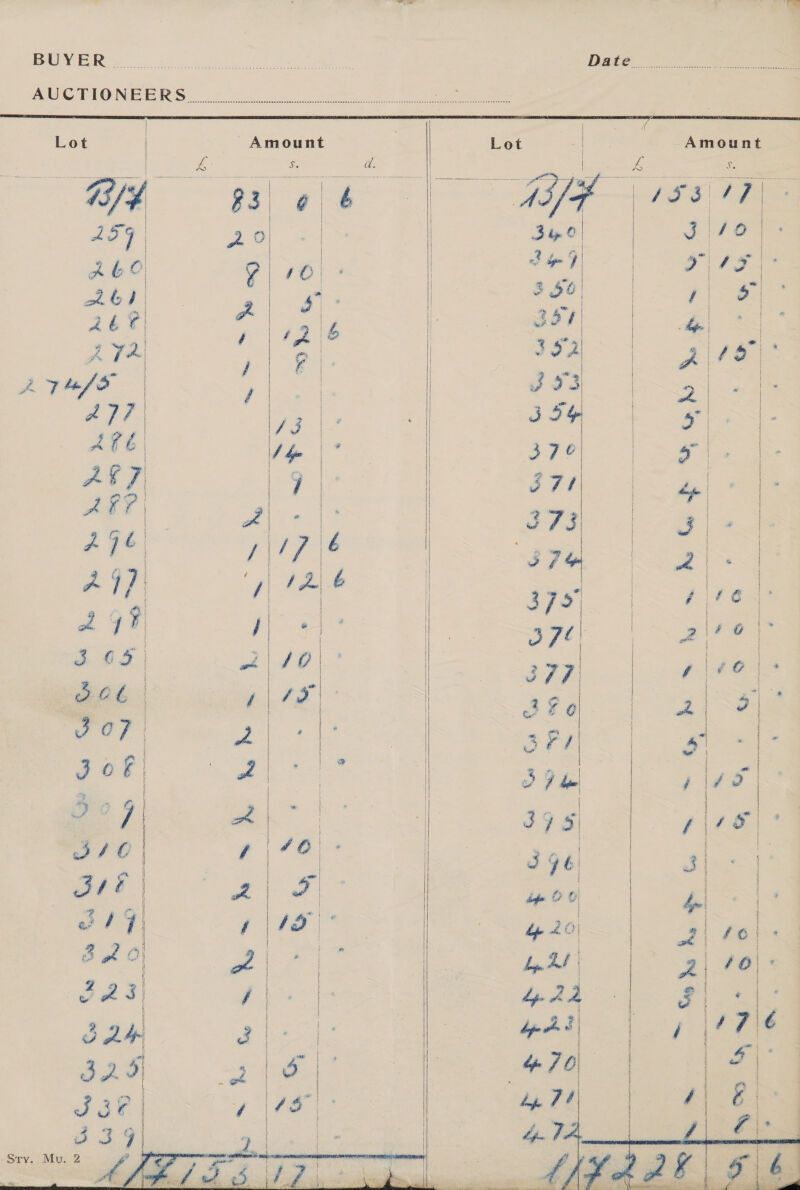 BUYER Date
AUCTIONEERS
Lot Amount
£ s. d.
B/F 83 0 6
259 20 - -
260 8 10 -
261 2 5 -
268 1 12 6
272 1 8 -
274/5 1 - -
277 13 -
286 14 -
287 9 -
288 2 - -
296 1 17 6
297 1 12 6
298 1 - -
305 2 10 -
306 1 15 -
307 2 - -
308 2 - -
309 2 - -
310 1 10 -
318 2 5 -
319 1 15 -
320 2 - -
323 1 - -
324 3 - -
325 2 5 -
338 1 15 -
339 2 - -
C/F 153 17 -
Sty. Mu. 2
Lot Amount
£ s.
B/F 153 17 -
340 3 10 -
349 5 15 -
350 1 5 -
351 4 - -
352 2 15 -
353 2 - -
354 5 - -
370 5 - -
371 4 - -
373 3 - -
374 2 - -
375 1 10 -
376 2 10 -
377 1 10 -
380 2 5 -
381 5 - -
394 1 15 -
395 1 15 -
396 3 - -
400 4 - -
420 2 10 -
421 2 10 -
422 3 - -
423 1 17 6
470 5 -
471 1 8 -
472 1 8 -
C/F 228 5 6